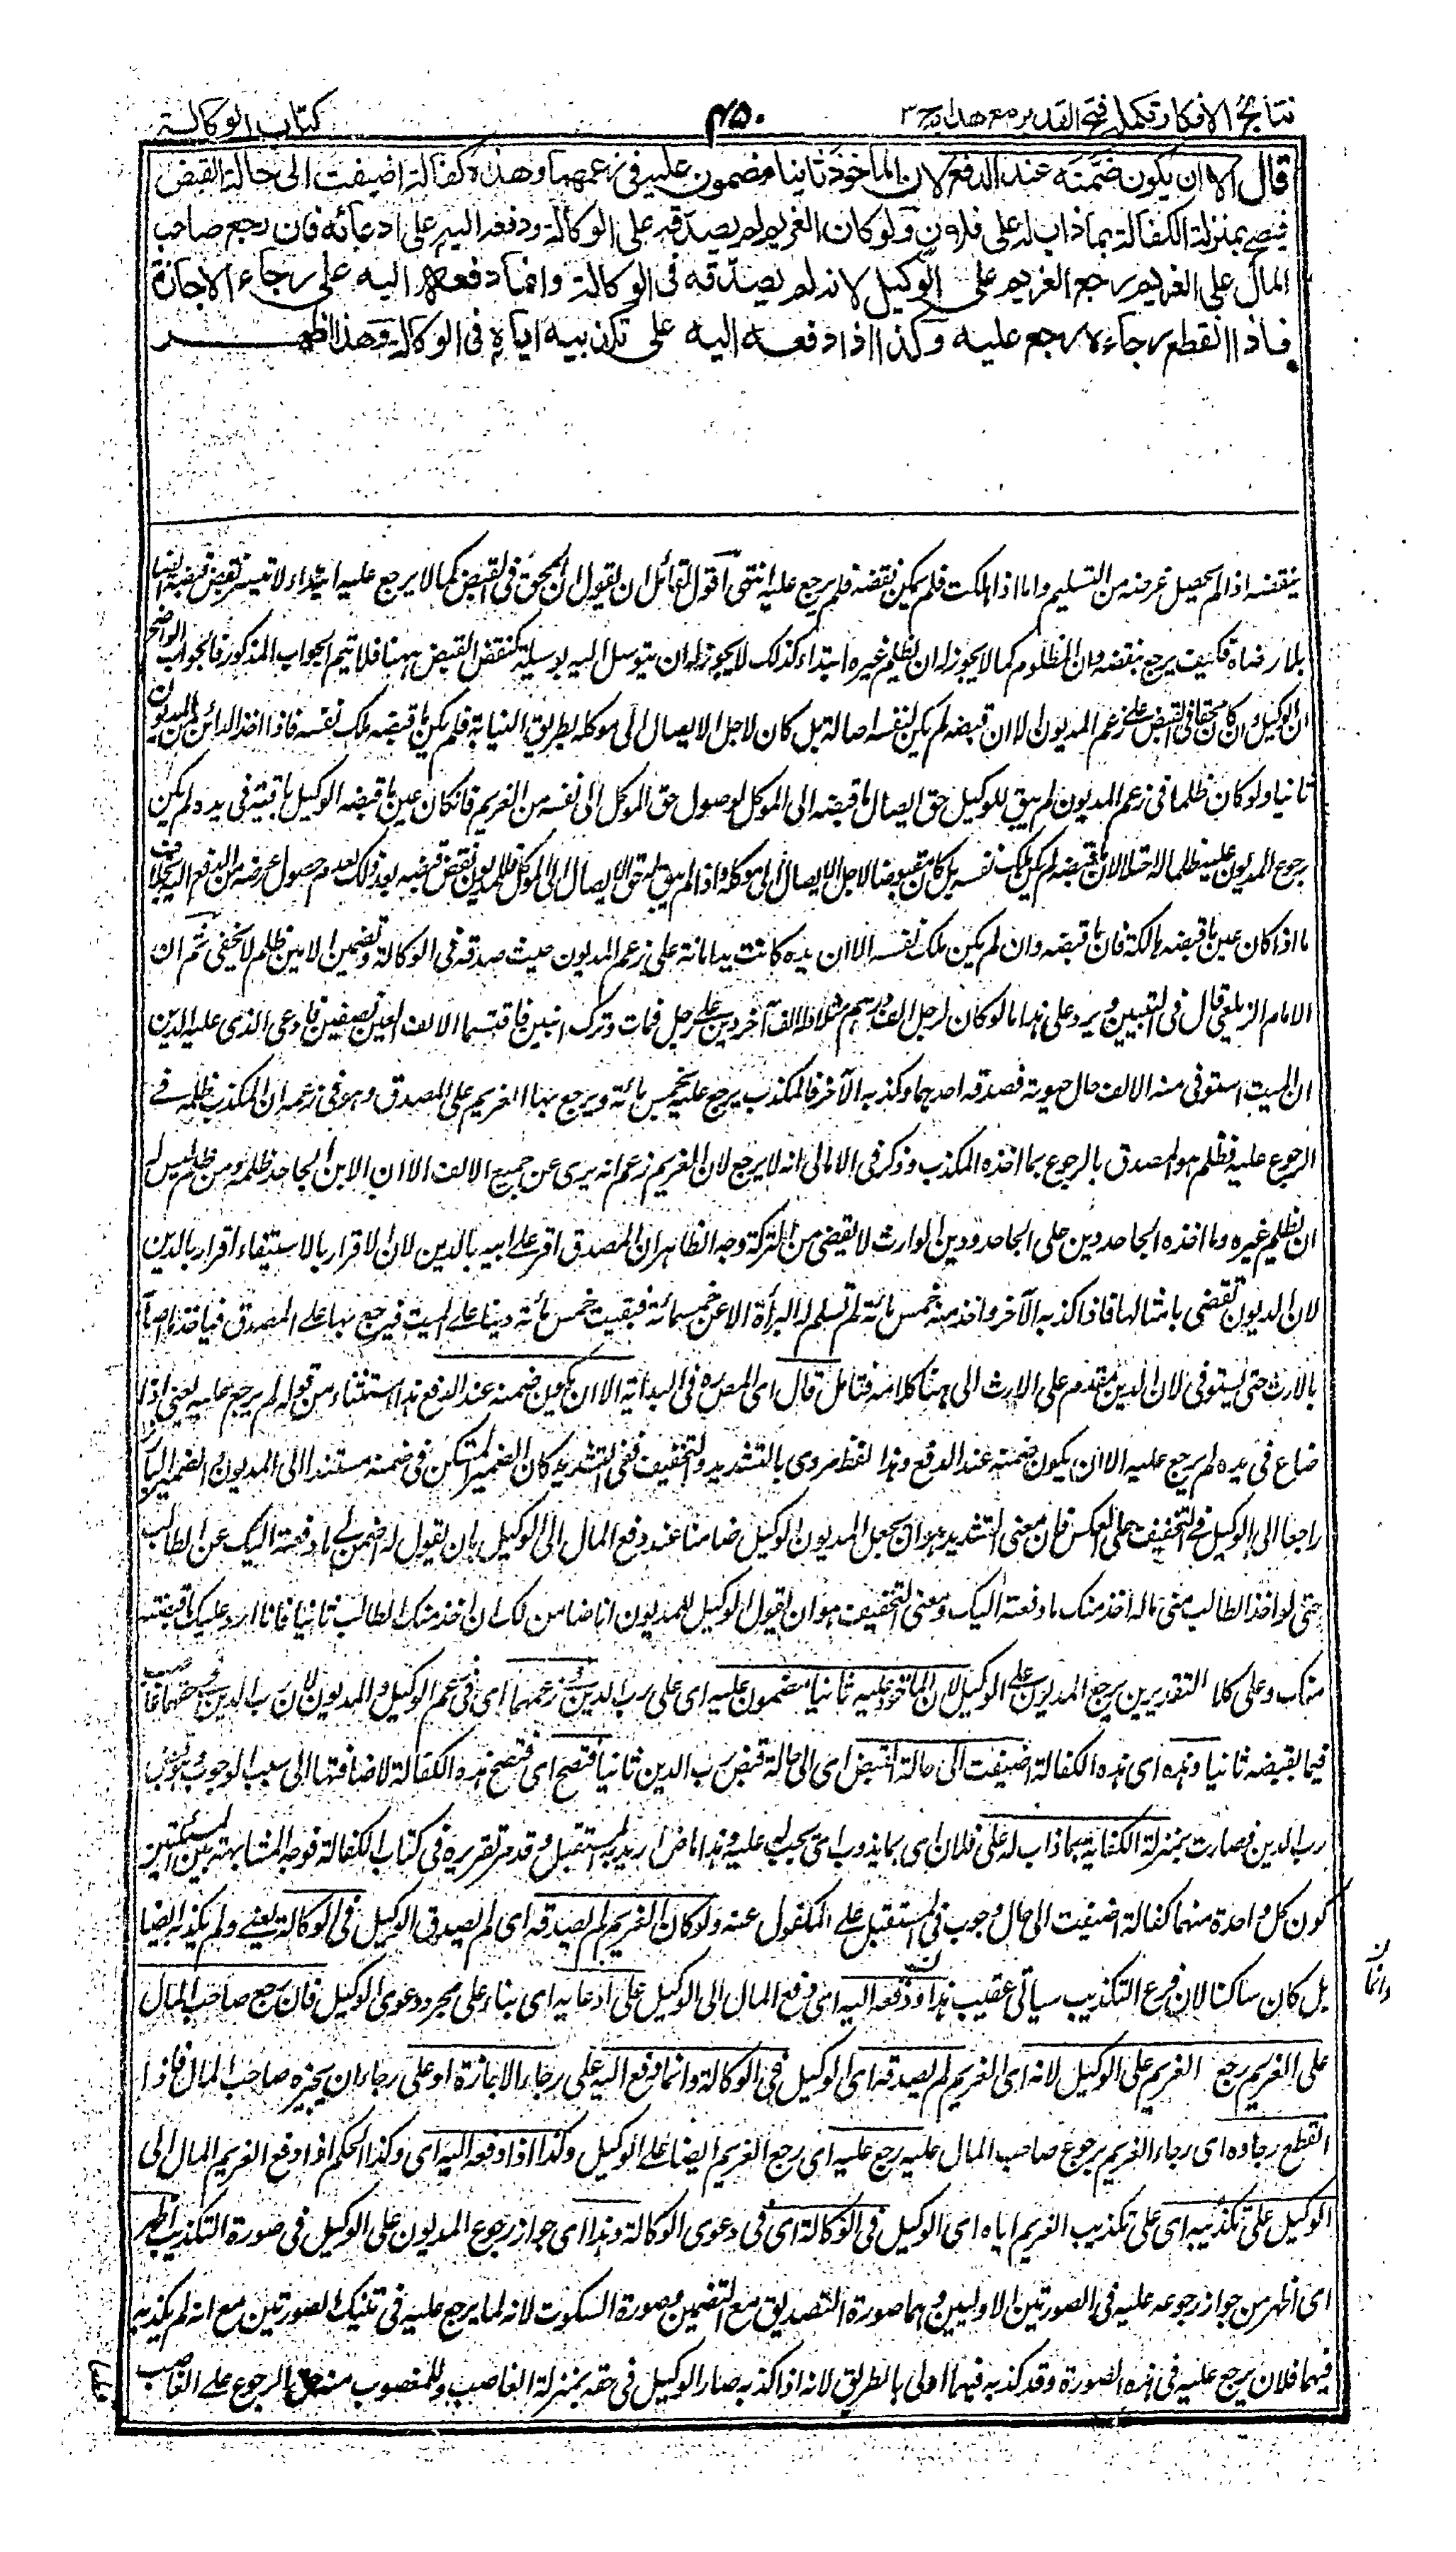 نتائج الافكار تكملة فتح القدير مع هداية ج ٣
٤٥٠
كتاب الوكالة
قال الا ان يكون ضمّنه عند الدفع لان الماخوذ ثانيا مضمون عليه في زعمهما وهذه كفالة اضيفت الى حالة القبض
فيصح بمنزلة الكفالة بما ذاب له على فلان ولو كان الغريم لم يصدّقه على الوكالة ودفعه اليه على ادعائه فان رجع صاحب
المال على الغريم رجع الغريم على الوكيل لانه لم يصدّقه في الوكالة وانما دفعه اليه على رجاء الاجازة
فاذا انقطع رجاءه رجع عليه وكذا اذا دفعه اليه على تكذيبه اياه في الوكالة وهذا اظهر
ينقضه اذا لم يحصل غرضه من التسليم واما اذا هلكت فلم يمكن نقضه فلم يرجع عليه انتهى اقول لقائل ان يقول ان المحق في القبض كما لا يرجع عليه ابتداء لا نقض قبضه ايضا
بلا رضاه فكيف يرجع بنقضه وان المظلوم كما لا يجوز له ان يظلم غيره ابتداء كذلك لا يجوز له ان يتوسل اليه بوسيلة كنقض القبض ههنا فلا يتم الجواب المذكور فالجواب الواضح
ان الوكيل وان كان محقا في القبض على زعم المديون الا ان قبضه لم يكن لنفسه اصالة بل كان لاجل الايصال الى موكله بطريق النيابة فلم يكن ما قبضه ملك نفسه فاذا اخذ الدائن من المديون
ثانيا ولو كان ظلما في زعم المديون لم يبق للوكيل حق ايصال ما قبضه الى الموكل لوصول حق الموكل الى نفسه من الغريم فان كان عين ما قبضه الوكيل باقية في يده لم يكن
رجوع المديون عليه ظلما له اصلا لان ما قبضه لم يكن ملك نفسه بل كان مقبوضا لاجل الايصال الى موكله واذا لم يبق له حق الايصال الى الموكل فللمديون نقض قبضه بعد ذلك لعدم حصول غرضه من الدفع اليه بخلاف
ما اذا كان عين ما قبضه هالكة فان ما قبضه وان لم يكن ملك نفسه الا ان يده كانت يد امانة على زعم المديون حيث صدقه في الوكالة وتضمين الامين ظلم لا يخفى ثم ان
الامام الزيلعي قال في التبيين ويرد على هذا ما لو كان لرجل الف درهم مثلا وله الف آخر دين على رجل فمات وترك ابنين فاقتسما الالف العين نصفين فادعى الذي عليه الدين
ان الميت استوفى منه الالف حال حيوته فصدقه احدهما وكذبه الآخر فالمكذب يرجع عليه بخمس مائة ويرجع بها الغريم على المصدق وهو في زعمه ان المكذب ظلمه في
الرجوع عليه فظلم هو المصدق بالرجوع بما اخذه المكذب وذكر في الامالى انه لا يرجع لان الغريم زعم انه برى عن جميع الالف الا ان الابن الجاحد ظلمه ومن ظلم ليس له
ان يظلم غيره وما اخذه الجاحد دين على الجاحد ودين الوارث لا يقضى من التركة وجه الظاهر ان المصدق اقر على ابيه بالدين لان الاقرار بالاستيفاء اقرار بالدين
لان الديون تقضى بامثالها فاذا كذبه الآخر واخذ منه خمس مائة لم تسلم له البراءة الا عن خمسمائة فبقيت خمس مائة دينا على الميت فيرجع بها على المصدق فياخذ ما اصابه
بالارث حتى يستوفى لان الدين مقدم على الارث الى هنا كلامه فتامل قال اى المصره في البداية الا ان يكون ضمنه عند الدفع هذا استثناء من قوله لم يرجع عليه يعنى اذا
ضاع في يده لم يرجع عليه الا ان يكون ضمنه عند الدفع وهذا لفظ مروى بالتشديد والتخفيف ففى التشديد كان الضمير المستكن في ضمنه مستندا الى المديون والضمير البارز
راجعا الى الوكيل وفى التخفيف على العكس فان معنى التشديد هو ان يجعل المديون الوكيل ضامنا عند دفع المال الى الوكيل بان يقول له اضمن لى ما دفعته اليك عن الطالب
حتى لو اخذ الطالب منى ماله اخذ منك ما دفعته اليك ومعنى التخفيف هو ان يقول الوكيل للمديون انا ضامن لك ان اخذ منك الطالب ثانيا فانا ارد عليك ما قبضته
منك وعلى كلا التقديرين يرجع المديون على الوكيل لان الماخوذ عليه ثانيا مضمون عليه اى على رب الدين في زعمهما اى في زعم الوكيل والمديون لان رب الدين في حقهما غاصب
فيما يقبضه ثانيا وهذه اى هذه الكفالة اضيفت الى حالة القبض اى الى حالة قبض رب الدين ثانيا فتصح اى فتصح هذه الكفالة لاضافتها الى سبب الوجوب وهو قبض
رب الدين فصارت بمنزلة الكفالة بما ذاب له على فلان اى بما يذوب اى يجب له عليه وهذا ماض اريد به المستقبل وقد مر تقريره في كتاب الكفالة فوجه المشابهة بين المسئلتين
كون كل واحدة منهما كفالة اضيفت الى حال وجوب في المستقبل على المكفول عنه ولو كان الغريم لم يصدقه اى لم يصدق الوكيل في الوكالة يعنى ولم يكذبه ايضا
بل كان ساكتا لان فرع التكذيب سياتى عقيب هذا ودفعه اليه اى دفع المال الى الوكيل على ادعائه اى بناء على مجرد دعوى الوكيل فان رجع صاحب المال
على الغريم رجع الغريم على الوكيل لانه اى الغريم لم يصدقه اى الوكيل في الوكالة وانما دفع اليه على رجاء الاجازة او على رجاء ان يجيزه صاحب المال فاذا
انقطع رجاؤه اى رجاء الغريم برجوع صاحب المال عليه رجع عليه اى رجع الغريم ايضا على الوكيل وكذا اذا دفعه اليه اى وكذا الحكم اذا دفع الغريم المال الى
الوكيل على تكذيبه اى على تكذيب الغريم اياه اى الوكيل في الوكالة اى في دعوى الوكالة وهذا اى جواز رجوع المديون على الوكيل في صورة التكذيب اظهر
اى اظهر من جواز رجوعه عليه في الصورتين الاوليين وهما صورة التصديق مع التضمين وصورة السكوت لانه لما يرجع عليه في تينك الصورتين مع انه لم يكذبه
فيهما فلان يرجع عليه في هذه الصورة وقد كذبه فيها اولى بالطريق لانه اذا كذبه صار الوكيل في حقه بمنزلة الغاصب وللمغصوب منه حق الرجوع على الغاصب